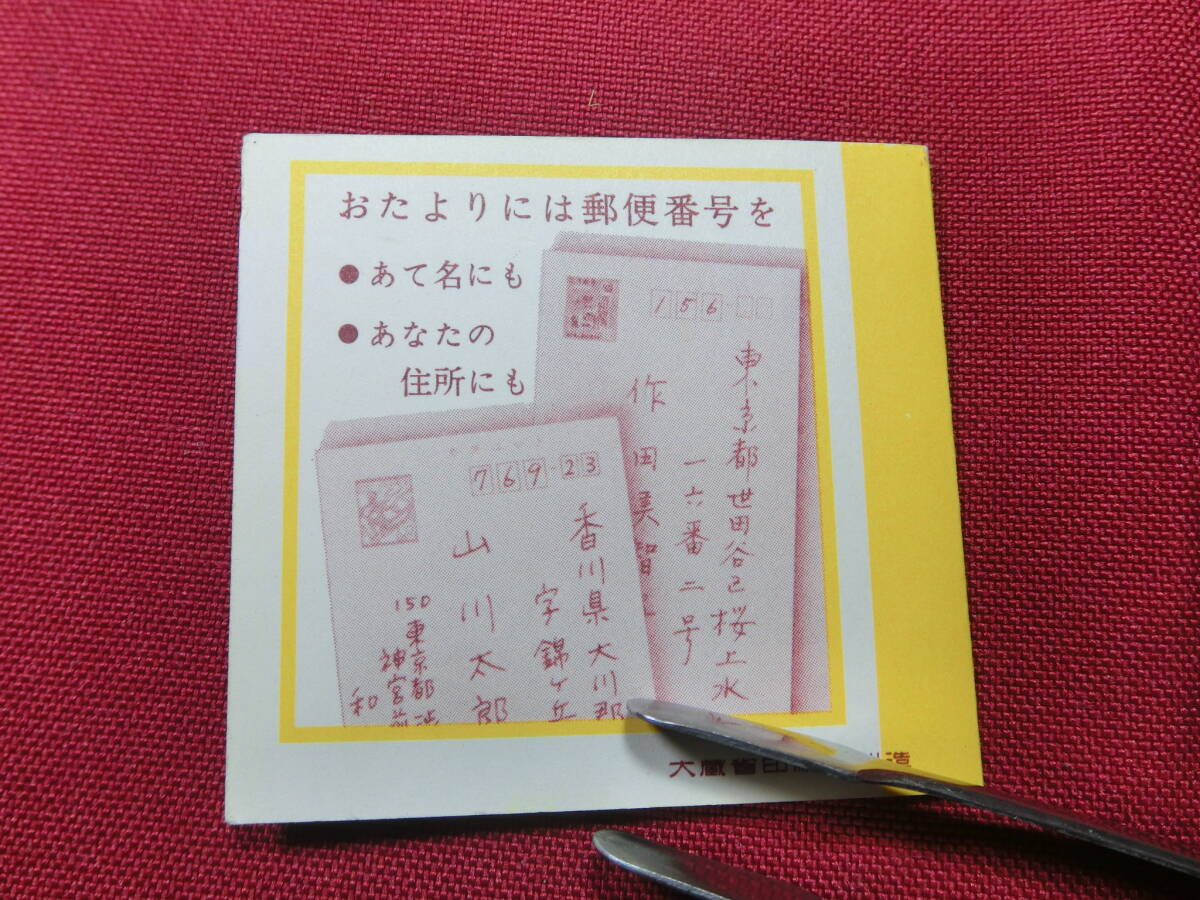 おたよりには郵便番号を
●あて名にも
●あなたの
住所にも
156
東京都世田谷区桜上水
一六番二号
作田美智
769-23
香川県大川郡
字錦ヶ丘
山川太郎
150
東京都渋
神宮前
和
大蔵省印 造